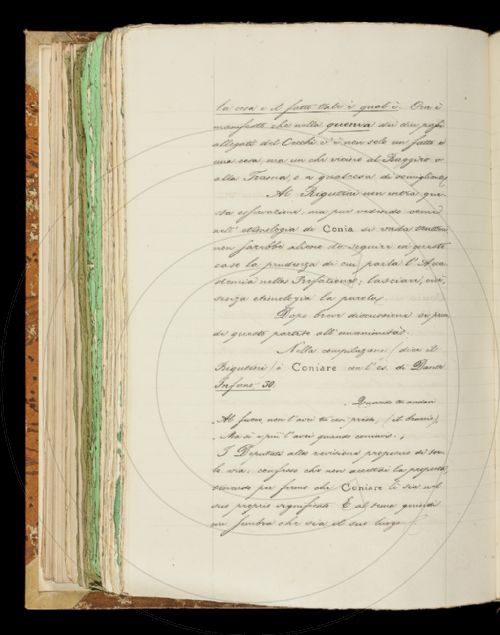 la cosa e il fatto tale è qual è. Ora è
manifesto che nella guerra dei due passi
allegati del Cecchi v'è non solo un fatto o
una cosa, ma un che vicino al
alla Frasca, o a qualcosa di somigliante
Al Rigutini non entra que-
sta osservazione, ma pur vedendo come
nell'etimologia di Conia si vada tentoni
non sarebbe alieno da seguire in questo
caso la prudenza di cui parla l'Acca-
demia nella Prefazione; lasciare, cioè,
senza etimologia la parola.
Dopo breve discussione si pren
de questo partito all'unanimità.
Nella compilazione (dice il
Rigutini) è Coniare con l'es. di Dante
Infano 30.
Quando tu andavi
Al fuoco, non l'avei tu così presto, (il braccio),
Ma sì e più l'avei quando coniavi.
I Deputati alla revisione propone di
via; confesso che non accettai la proposta,
tenendo per fermo che Coniare lì sia nel
suo proprio significato. E al tema quindi
mi sembra che sia il suo luogo.